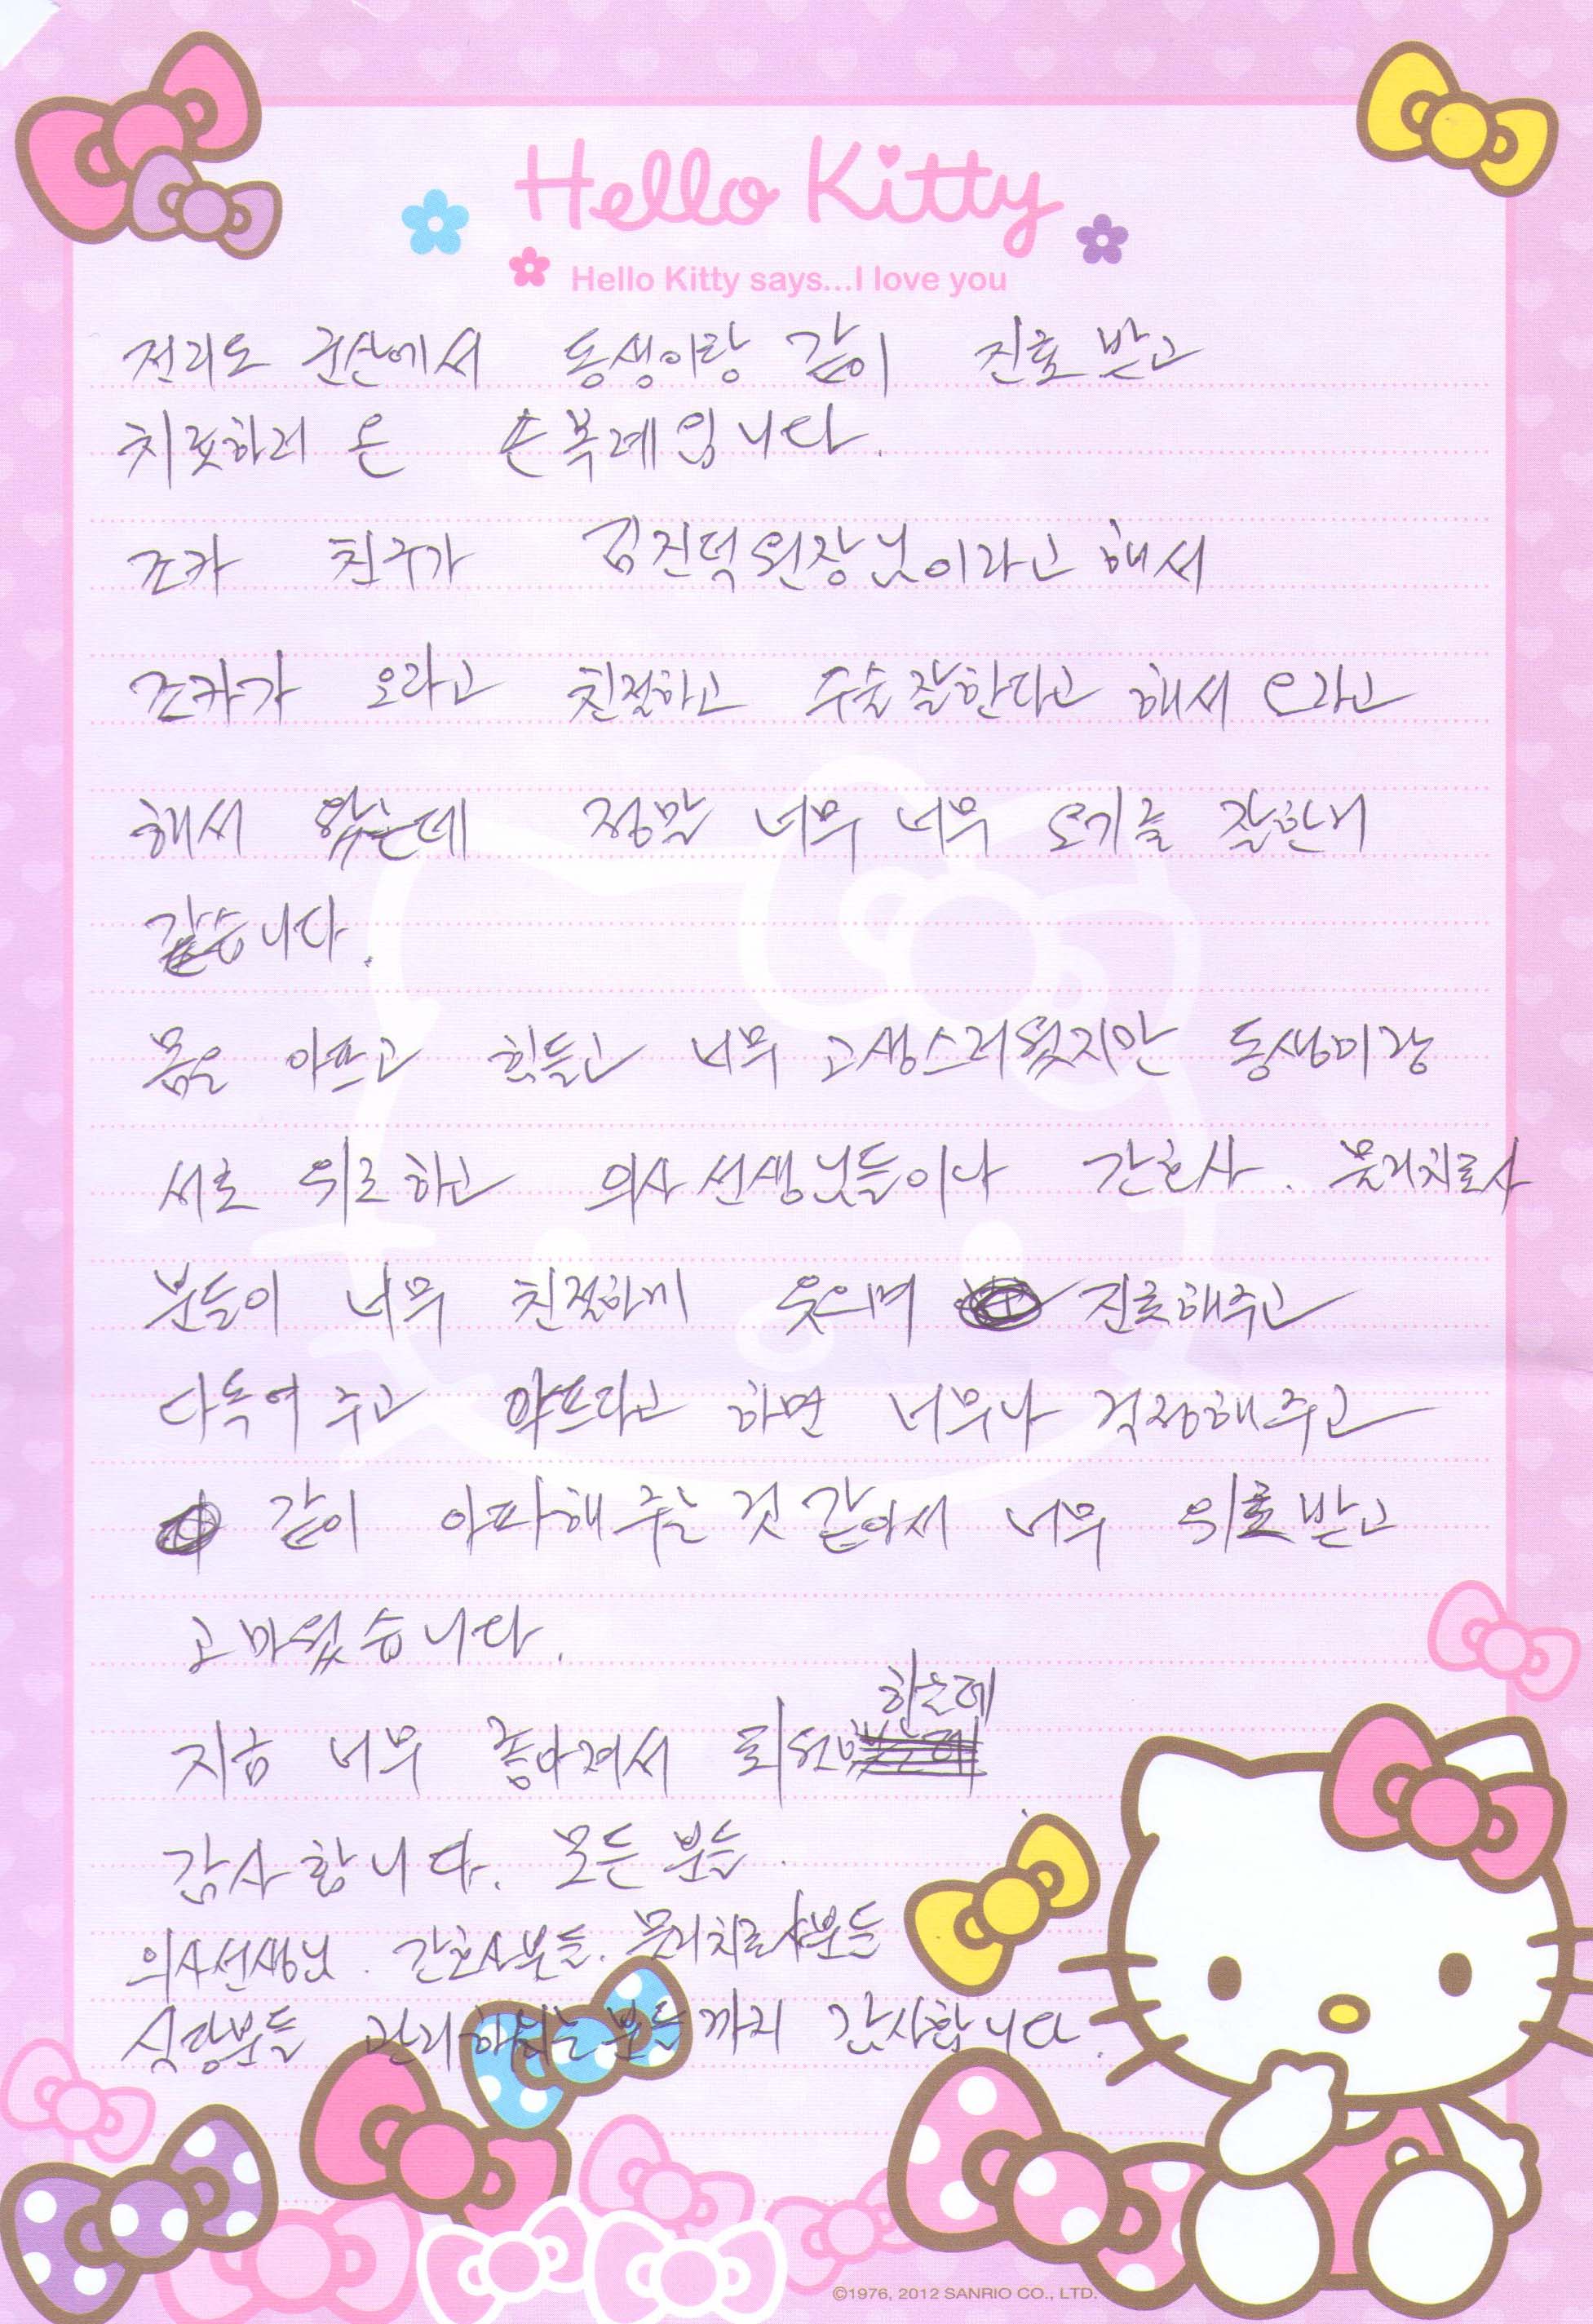 Hello Kitty
Hello Kitty says...I love you
전리도 군산에서 동생이랑 같이 진료 받고
치료하러 온 손복례입니다.
조카 친구가 김진덕원장님이라고 해서
조카가 오라고 친절하고 수술잘한다고 해서 오라고
해서 왔는데 정말 너무 너무 오기를 잘한거
같습니다.
몸은 아프고 힘들고 너무 고생스러웠지만 동생이랑
서로 위로하고 의사선생님들이나 간호사. 물리치료사
분들이 너무 친절하게 웃으며 진료해주고
다독여 주고 아프다고 하면 너무나 걱정해주고
같이 아파해 주는것 같아서 너무 위로받고
고마웠습니다.
하는데
지금 너무 좋아져서 퇴원
감사합니다. 모든 분들.
의사선생님. 간호사분들. 물리치료사분들
식당분들 관리하시는분들까지 감사합니다.
©1976, 2012 SANRIO CO., LTD.